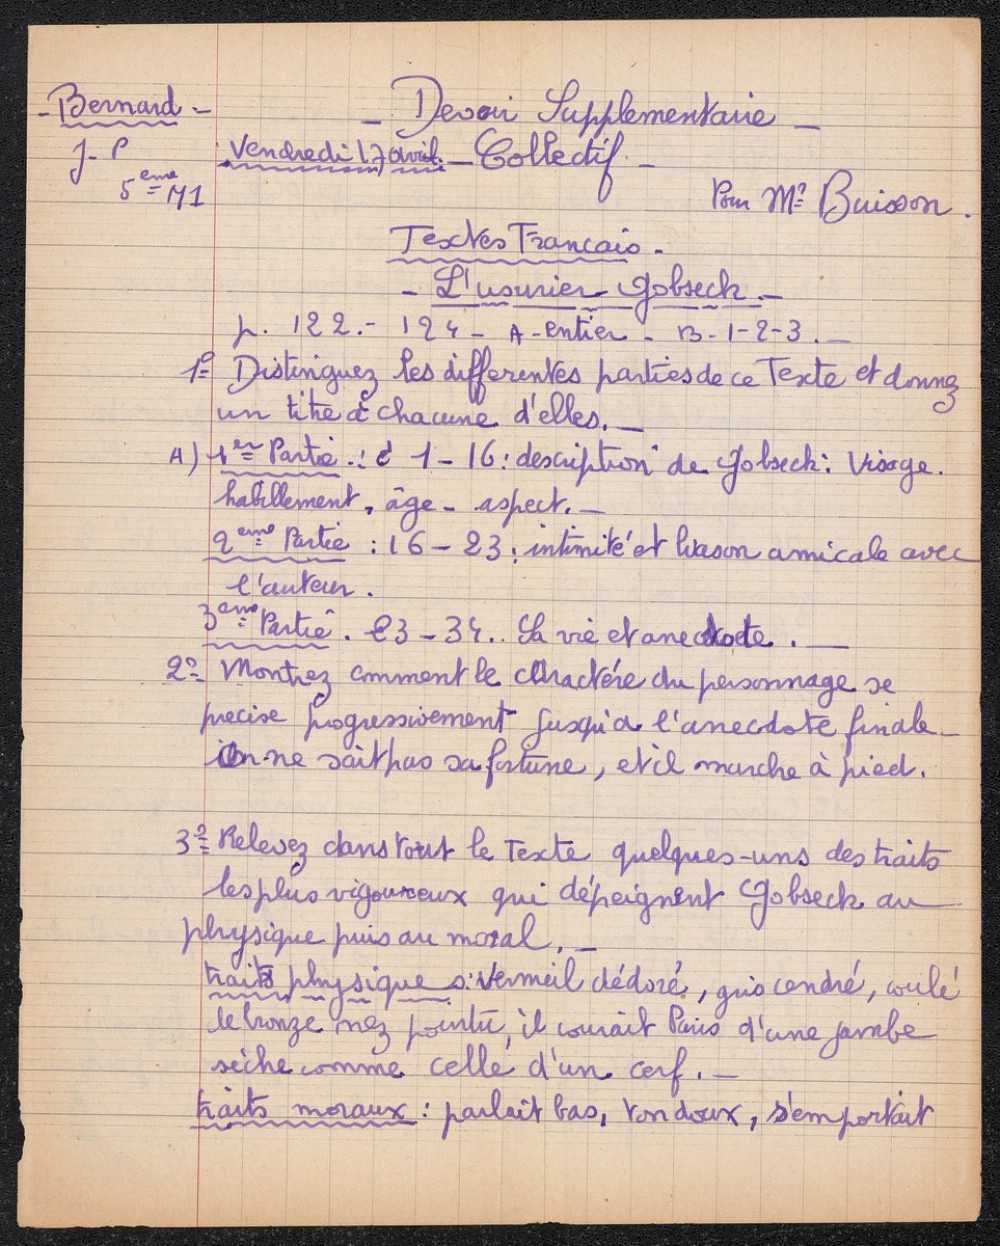 - Bernard -
- Devoir Supplementaire -
J- P
Vendredi 17 avril. - Collectif -
5ème M1
Pour Mr Buisson.
Textes Francais -
- L'usurier Gobseck. -
p. 122.- 124 - A -entier - B-1-2-3. -
1º Distinguez les differentes parties de ce Texte et donnez
un titre à chacune d'elles. -
A) 1er Partie : 1-16 : description de Gobseck : Visage.
habillement, âge - aspect. -
2ème Partie : 16 - 23 : intimité et liason amicale avec
l'auteur.
3ème Partie. 23 - 34.. La vie et anecdote. -
2º Montrez comment le charactére du personnage se
precise progressivement jusqu'a l'anecdote finale -
on ne sait pas sa fortune, et il marche à pied.
3º Relevez dans tout le Texte quelques-uns des traits
les plus vigoureux qui dépeignent Gobseck au
physique puis au moral. -
traits physiques : vermeil dédoré, gris cendré, coulé
de bronze nez pointu, il courait Paris d'une jambe
sèche comme celle d'un cerf. -
traits moraux : parlait bas, ton doux, s'emportait